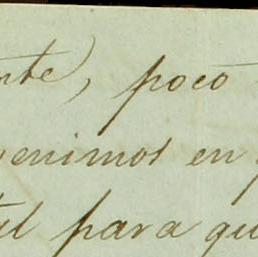 nte, poco
venimos en
tal para qu